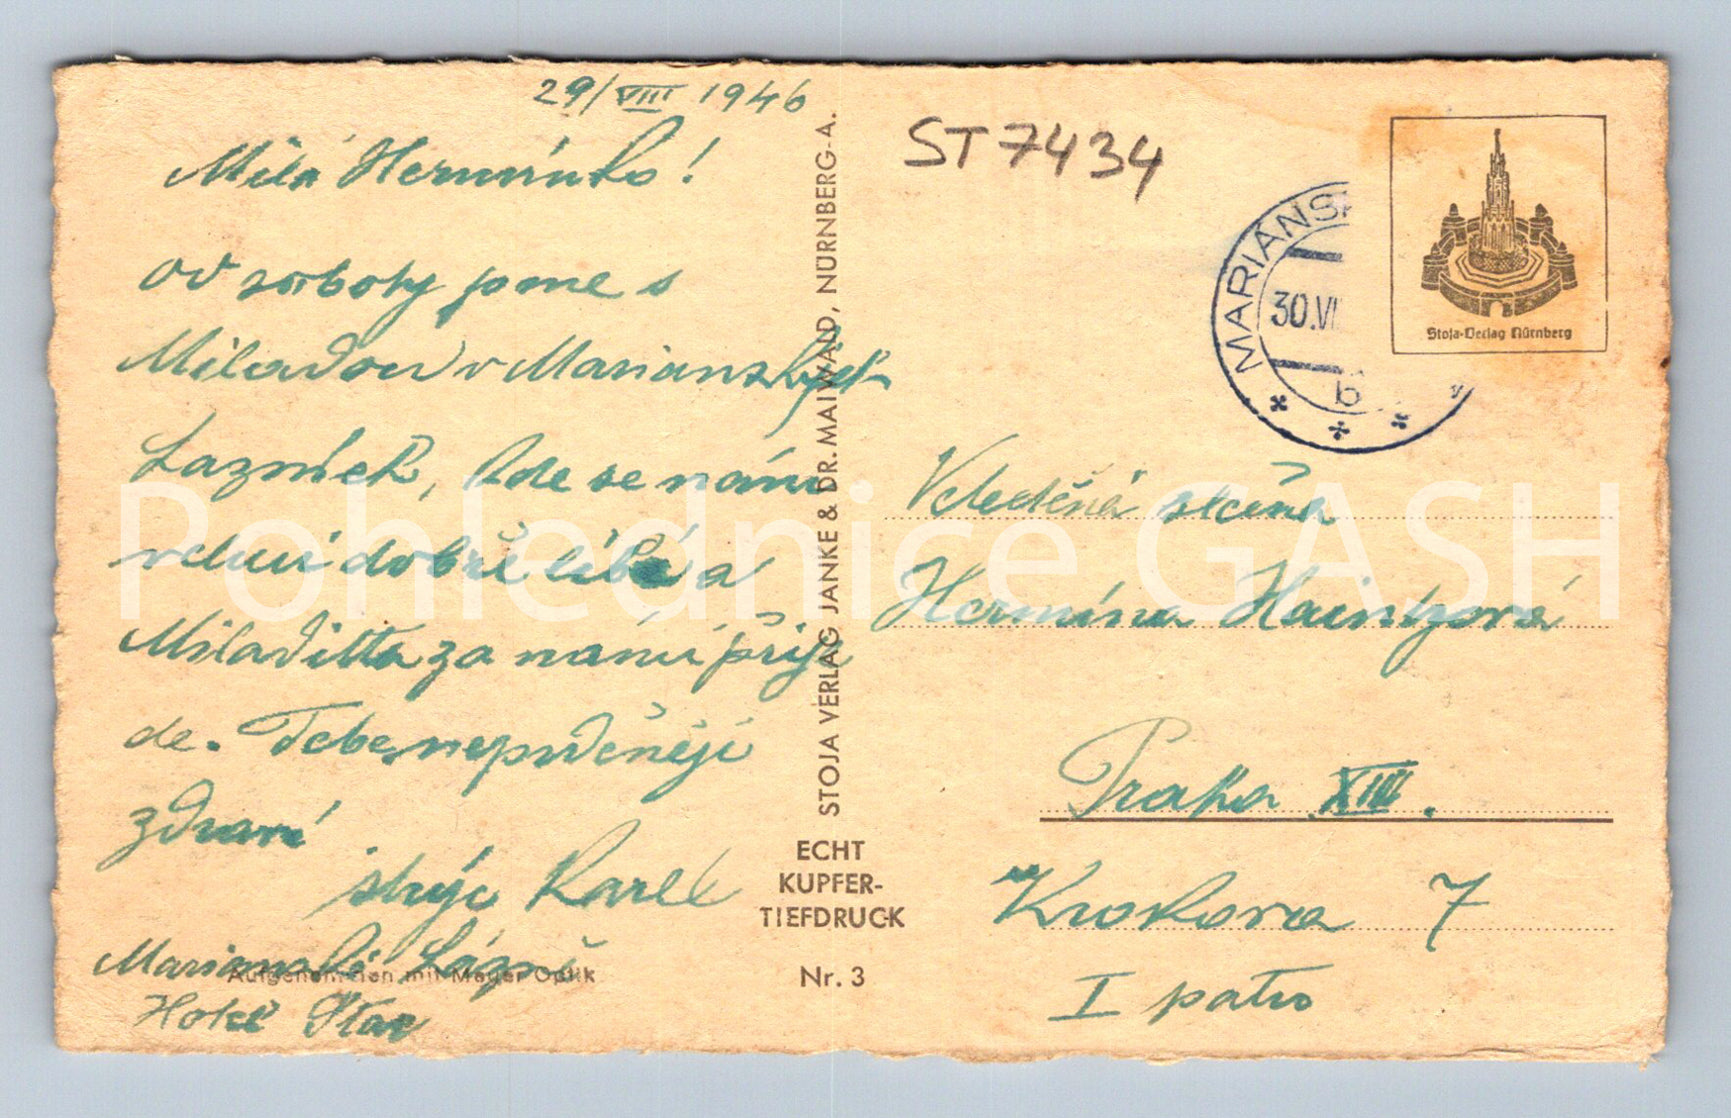 29/VIII 1946
Milá Hermínko!
od soboty jsme s
Miladou v Marianských
Lazních, zde se nám
velmi dobře líbí a
Miladitka za námi přije
de. Tebe nejsrdečněji
zdraví
strýc Karel
Marianské Lázně
Hotel Star
Aufgenommen mit Meyer Optik
STOJA VERLAG JANKE & DR. MAIWALD, NÜRNBERG-A.
ECHT
KUPFER-
TIEFDRUCK
Nr. 3
ST7434
MARIANSK
30.VII
b
Stoja-Verlag Nürnberg
slečna
Hermína
Praha XIII.
Krokova 7
I patro
Pohlednice GASH